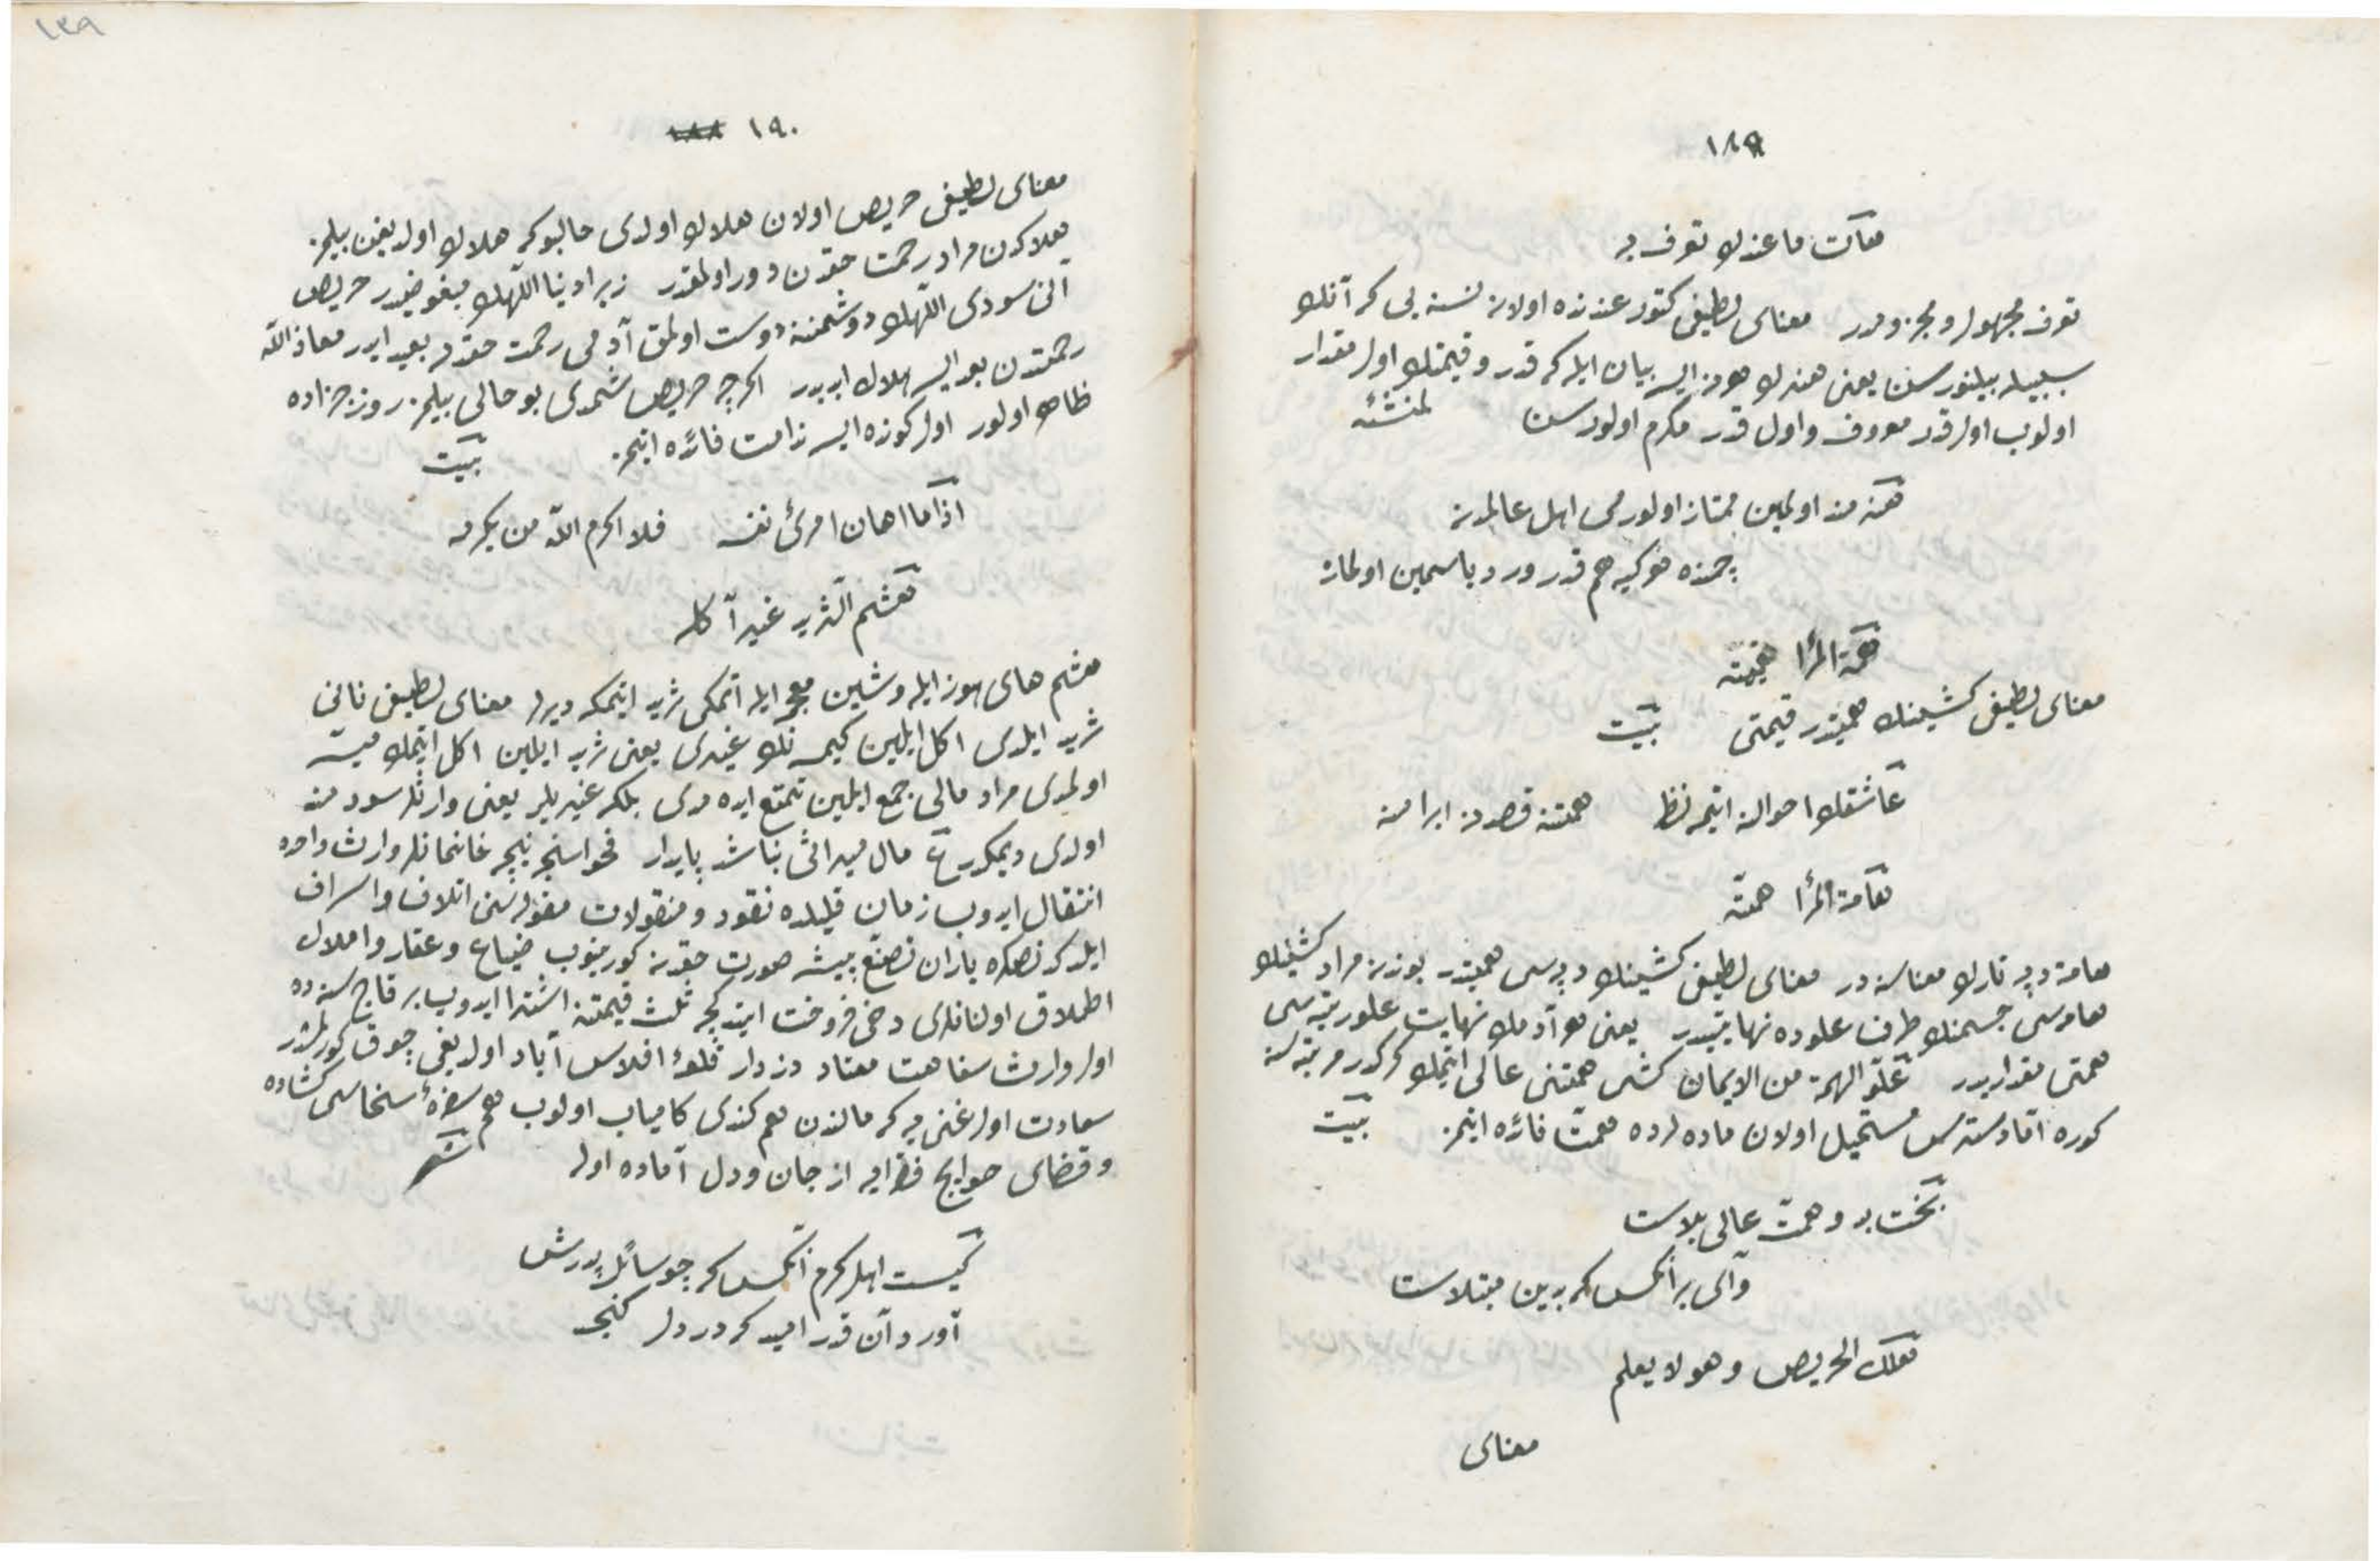 ١٨٩
هات ما عندك تعرف به
تعرف مجهول و مجزومدر معنای لطیفی کتور عندنده اولان نسنه یی که آنك
سببیله بیلنورسن یعنی هنرك هر نه ایسه بیان ایله که قدر و قیمتك اول مقدار
اولوب اولقدر معروف و اول قدر مکرم اولورسن لمنشئه
هنرمند اولمین ممتاز اولورمی اهل عالمدن
چمنده هر کیه هم قدر ورد یاسمین اولماز
همة المرأ قیمته
معنای لطیفی کشینك همتیدر قیمتی بیت
عاشقك احوالنه ایتمه نظر همتنه قصرنه ایرامنه
هامة المرأ همته
هامه دپه تارك معناسنه در معنای لطیفی کشینك دپه سی همتیدر بوندن مراد کشینك
هامه سی جسمنك طرف علوده نهایتیدر یعنی هر آدمك نهایت علو رتبه سی
همتی مقداریدر علو الهمة من الایمان کشی همتنی عالی ایتمك کرکدر مرتبه سنه
کوره اما دسترس مستحیل اولان ماده لرده همت فائده ایتمز بیت
بخت بد و همت عالی بلاست
وای بر آنکس که بدین مبتلاست
هلك الحریص و هو لا یعلم
معنای
١٣٩
١٩٠ ١٨٨
معنای لطیفی حریص اولان هلاك اولدی حالبوکه هلاك اولدیغن بیلمز
هلاکدن مراد رحمت حقدن دور اولمقدر زیرا دنیا اللهك مبغوضیدر حریص
آنی سودی اللهك دوشمننه دوست اولمق آدمی رحمت حقدن بعید ایدر معاذ الله
رحمتدن بعد ایسه هلاك ابدیدر اکرچه حریص شمدی بو حالی بیلمز روز جزاده
ظاهر اولور اول کونده ایسه ندامت فائده ایتمز بیت
اذا ما اهان امرئ نفسه فلا اکرم الله من یکرمه
هشم الثرید غیر آکله
هشم های هوز ایله و شین معجمه ایله اتمکی ثرید ایتمکه دیرلر معنای لطیفی نانی
ثرید ایلدی اکل ایلمین کیمسه نك غیری یعنی ثرید ایلین اکل ایتمك میسر
اولمدی مراد مالی جمع ایلین تمتع ایده مدی بلکه غیریلر یعنی وارثلر سودمند
اولدی دیمکدر ع مال میراثی نباشد پایدار فحواسنجه نیجه خانمانلر وارث واحده
انتقال ایدوب زمان قلیلده نقود و منقولات مقوله سنی اتلاف و اسراف
ایلدکدنصکره یاران تصنع پیشه صورت حقدن کورینوب ضیاع و عقار و املاك
اطلاق اولنانلری دخی فروخت ایتدیکجه ثلث قیمتنه اشترا ایدوب بر قاچ سنه ده
اول وارث سفاهت معتاد دزدار قلعۀ افلاس آباد اولدیغی چوق کورلمشدر
سعادت اول غنی یه که مالندن هم کندی کامیاب اولوب هم سفرۀ سخاسی کشاده
و قضای حوایج فقرایه از جان و دل آماده اوله شعر
کیست اهل کرم آنکس که چو سائل بدرش
آورد آن قدر امید که در دل کنجد